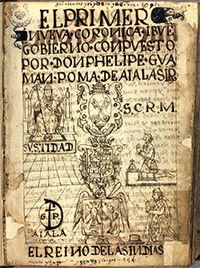 EL PRIMER
NVEVA CORONICA I BVE
GOBIERNO CONPVESTO
POR DON PHELIPE GVA
MAN POMA DE AIALA SR
S.C.R.M.
SV S TIDAD
AIALA
EL REINO DE LAS INDIAS